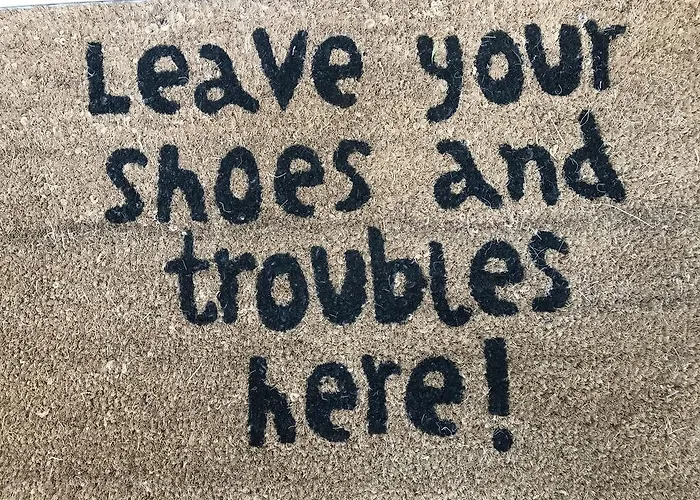 Leave your
shoes and
troubles
here!